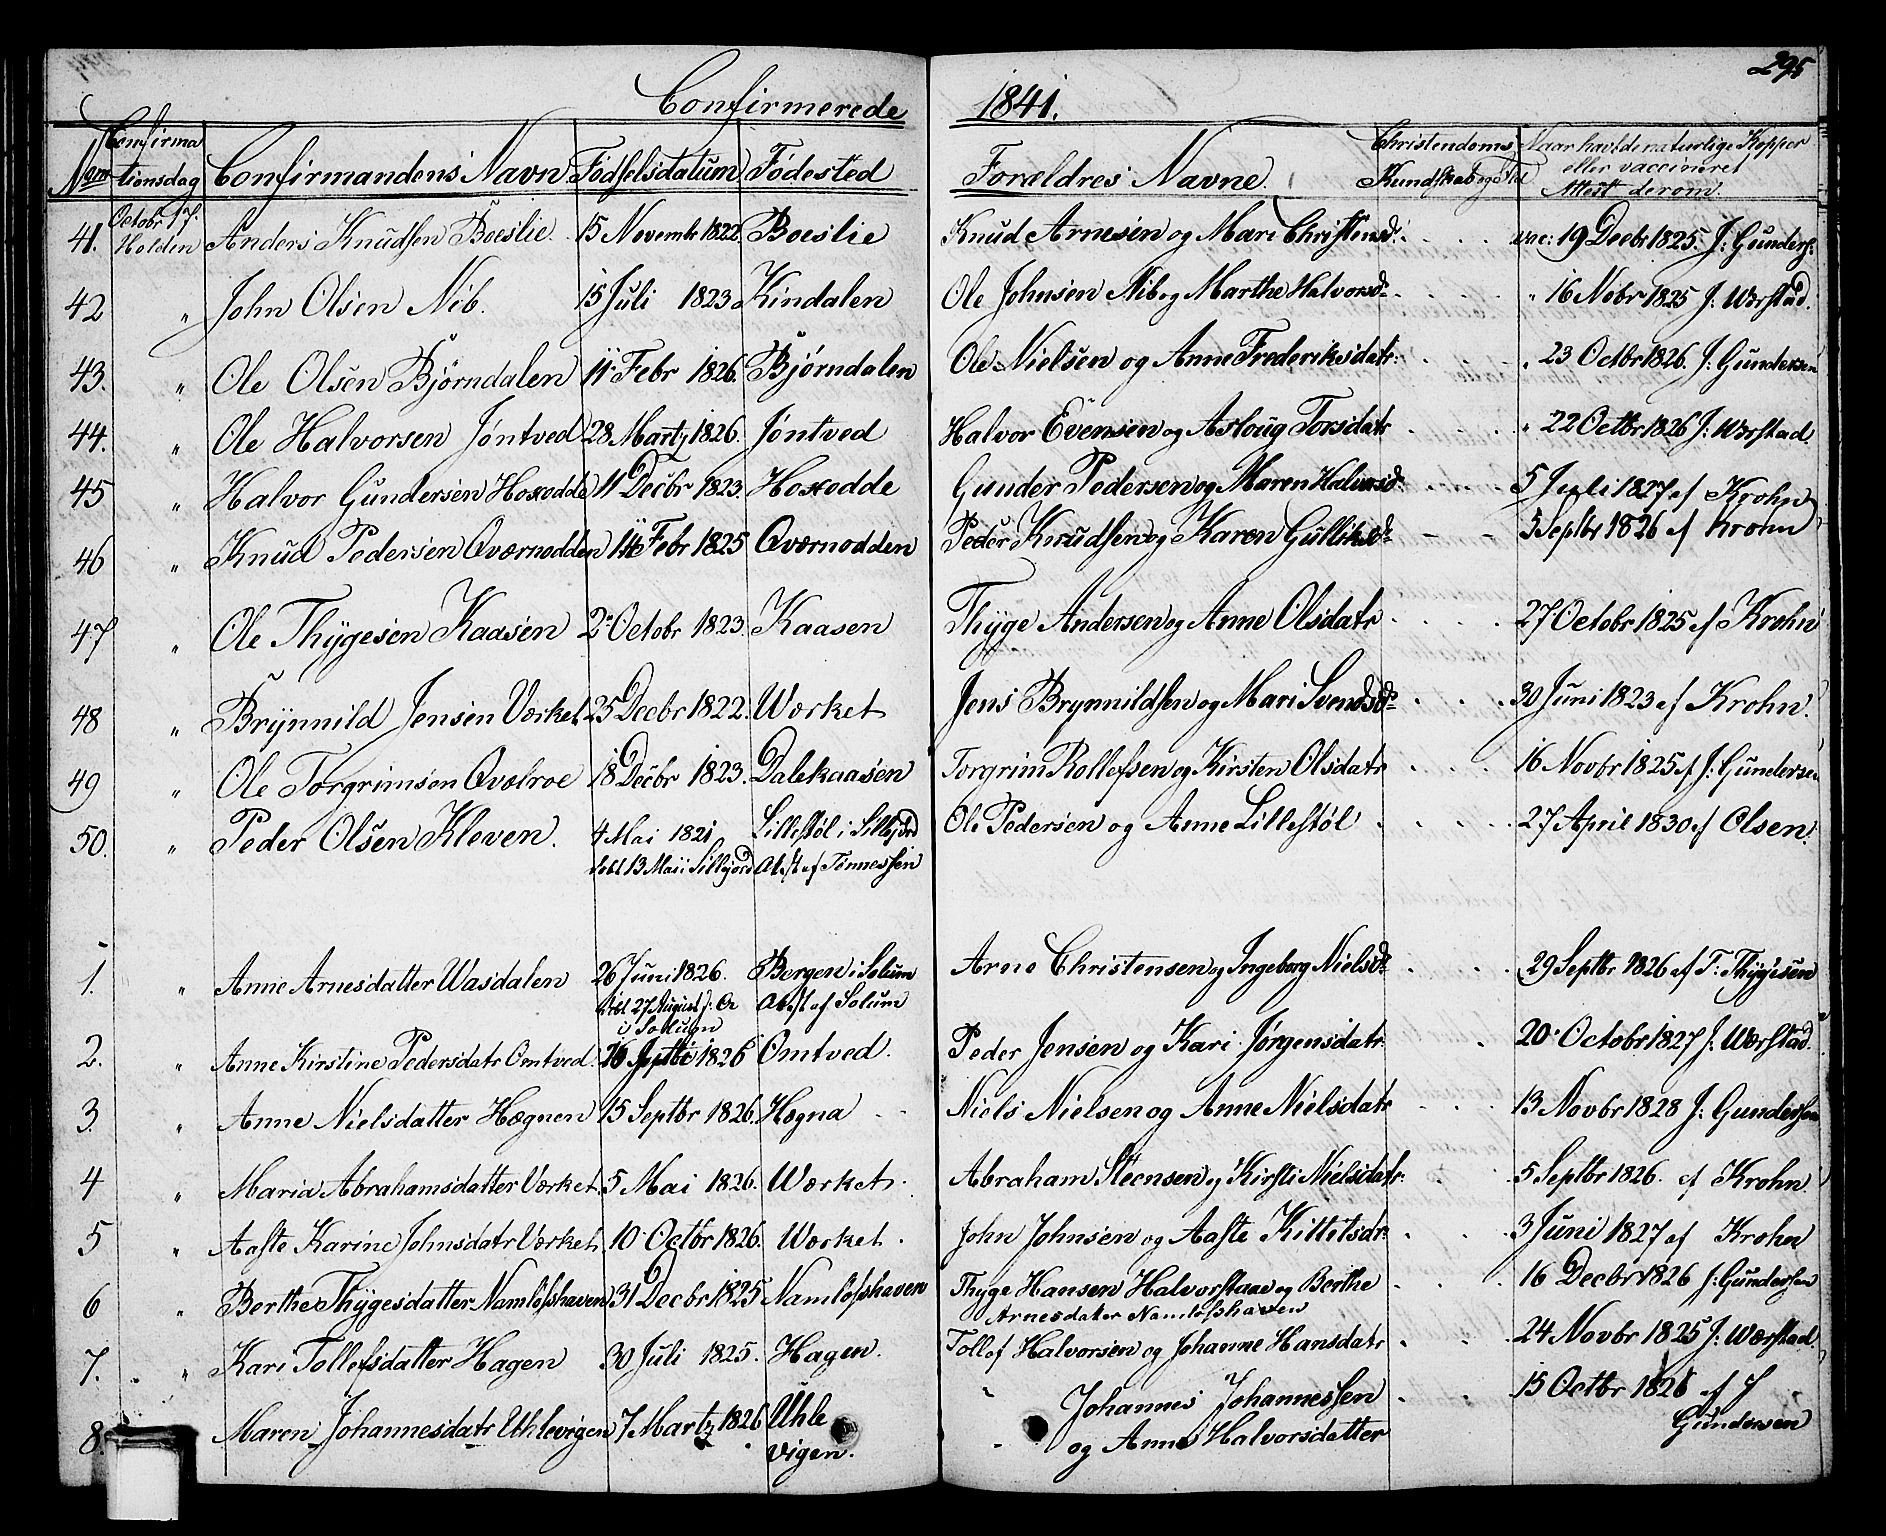 295
Confirmerede 1841.
Num Confirmationsdag Confirmandens Navn Fødselsdatum Fødested Forældres Navne Christendoms Kundskab og Naar havt de naturlige Kopper eller vaccineret Attest derom
41. Octobr 17: Holden Anders Knudsen Boeslie 15 Novemb 1822. Boeslie Knud Arnesen og Mari Christensd: vac: 19 Decbr 1825. J: Gunders:
42 " John Olsen Nib. 15 Juli 1823 Kindalen Ole Johnsen Nib og Marthe Halvorsd " 16 Nobr 1825 J: Worstad.
43. " Ole Olsen Bjørndalen 11 Febr 1826. Bjørndalen Ole Nielsen og Anne Frederiksdatr: " 23 Octbr 1826. J: Gundersen
44. " Ole Halvorsen Jøntved 28 Marty 1826. Jøntved Halvor Evensen og Asloug Torsdatr " 22 Octbr 1826 J: Worstad
45 " Halvor Gundersen Hoxodde 11 Decbr 1823. Hoxodde Gunder Pedersen og Maren Halvorsd: 5 Juli 1827 af Krohn
46 " Knud Pedersen Qværnodden 14 Febr 1825 Qværnodden Peder Knudsen og Karen Gulliksd: 5 Septbr 1826 af Krohn
47 " Ole Thygesen Kaasen 2 Octobr 1823. Kaasen Thyge Andersen og Anne Olsdatr 27 Octobr 1825 af Krohn
48 " Brynnild Jensen Værket 25 Decbr 1822. Værket Jens Brynnildsen og Mari Svendsd: 30 Juni 1823 af Krohn.
49 " Ole Torgrimsen Qvolroe 18 Decbr 1823. Dalekaasen Torgrim Rollefsen og Kirsten Olsdatr 16 Novbr 1825 af J: Gundersen
50. " Peder Olsen Kleven. 4 Mai 1821 Lillestøl i Sillejord Ole Pedersen og Anne Lillestøl 27 April 1830 af Olsen.
døbt 13 Mai i Sillejord Atest af Tønnessen
1. " Anne Arnesdatter Wasdalen 26 Juni 1826. Bergen i Solum Arne Christensen og Ingeborg Nielsd: 29 Septbr 1826 af T: Thygesen
døbt 27 August i Solum Atest af Solum
2. " Anne Kirstine Pedersdatr Omtved. 16 Septbr 1826 Omtved. Peder Jensen og Kari Jørgensdatr 20 Octobr 1827 J: Worstad.
3. " Anne Nielsdatter Hægnen 15 Septbr 1826. Hægna Niels Nielsen og Anne Nielsdatr 13 Novbr 1828 J: Gundersen
4 " Maria Abrahamsdatter Værket. 5 Mai 1826. Værket. Abraham Steensen og Kirsti Nielsdatr. 5 Septbr 1826. af Krohn
5 " Aaste Karine Johnsdatr Værket. 10 Octbr 1826. Værket. John Johnsen og Aaste Kittilsdr: 3 Juni 1827 af Krohn
6 " Berthe Thygesdatter Namløshaven 31 Decbr 1825 Namløshaven Thyge Hansen Halvorstaae og Berthe Arnesdater Namløshaven 16 Decbr 1826 J: Gundersen
7. " Kari Tollefsdatter Hagen 30 Juli 1825. Hagen. Tollef Halvorsen og Johanne Hansdatr 24 Novbr 1825 J: Worstad.
8. Maren Johannesdatr Uhlevigen 7 Marty 1826 Uhlevigen. Johannes Johannessen og Anne Halvorsdatter 15 Octbr 1826 af J Gundersen